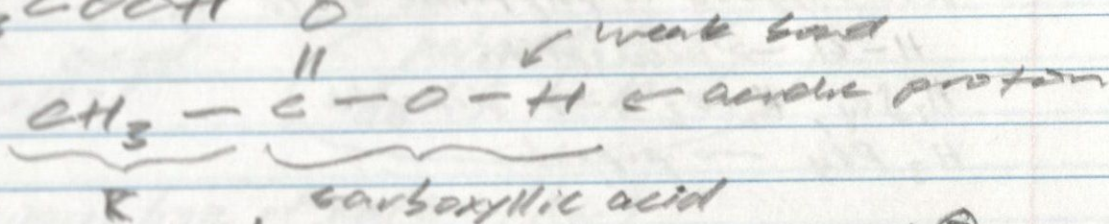 COOH O
↙ weak bond
||
CH₃ — C — O — H ← acidic proton
R carboxyllic acid